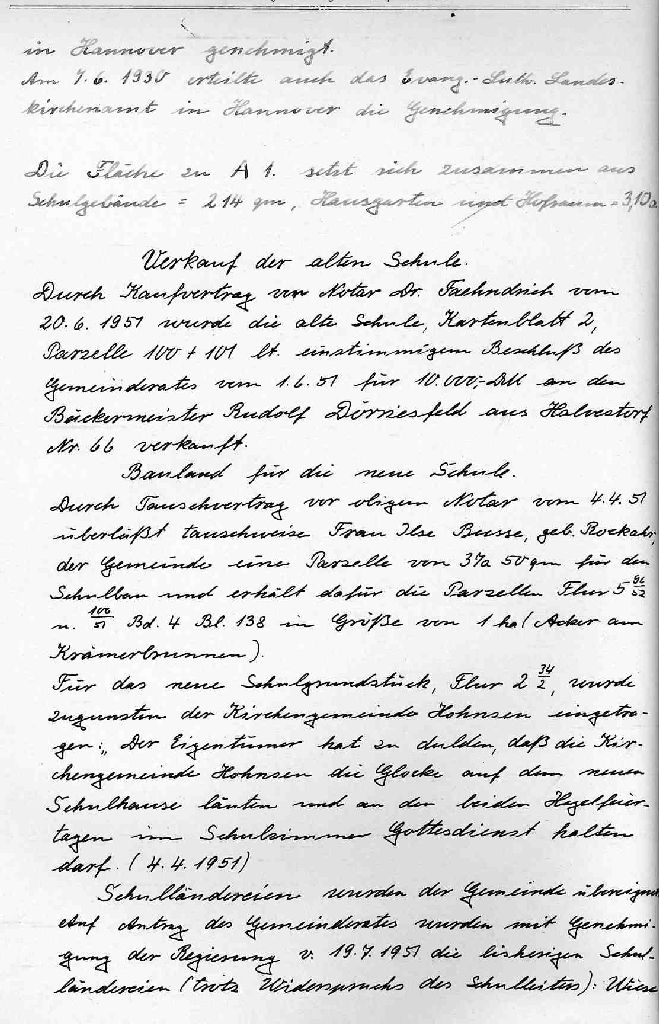 in Hannover genehmigt.
Am 7.6. 1930 erteilte auch das Evang.-Luth. Landes-
kirchenamt in Hannover die Genehmigung.
Die Fläche zu A 1. setzt sich zusammen aus
Schulgebäude = 214 qm, Hausgarten und Hofraum = 3,10a
Verkauf der alten Schule.
Durch Kaufvertrag vor Notar Dr. Faehndrich vom
20.6. 1951 wurde die alte Schule, Kartenblatt 2,
Parzelle 100 + 101 lt. einstimmigem Beschluß des
Gemeinderates vom 1.6.51 für 10.000,- DM an den
Bäckermeister Rudolf Dörriesfeld aus Halvestorf
Nr. 66 verkauft.
Bauland für die neue Schule.
Durch Tauschvertrag vor obigem Notar vom 4.4.51
überläßt tauschweise Frau Ilse Busse, geb. Rockahr,
der Gemeinde eine Parzelle von 37a 50qm für den
Schulbau und erhält dafür die Parzellen Flur 5 86/52
u. 106/51 Bd. 4 Bl. 138 in Größe von 1 ha (Acker am
Krämerbrunnen).
Für das neue Schulgrundstück, Flur 2 34/2, wurde
zugunsten der Kirchengemeinde Hohnsen eingetra-
gen: „Der Eigentümer hat zu dulden, daß die Kir-
chengemeinde Hohnsen die Glocke auf dem neuen
Schulhause läuten und an den beiden Hagelfeier-
tagen im Schulzimmer Gottesdienst halten
darf. (4.4.1951)
Schulländereien wurden der Gemeinde übereignet
Auf Antrag des Gemeinderates wurden mit Genehmi-
gung der Regierung v. 19.7.1951 die bisherigen Schul-
ländereien (trotz Widerspruchs des Schulleiters): Wiese